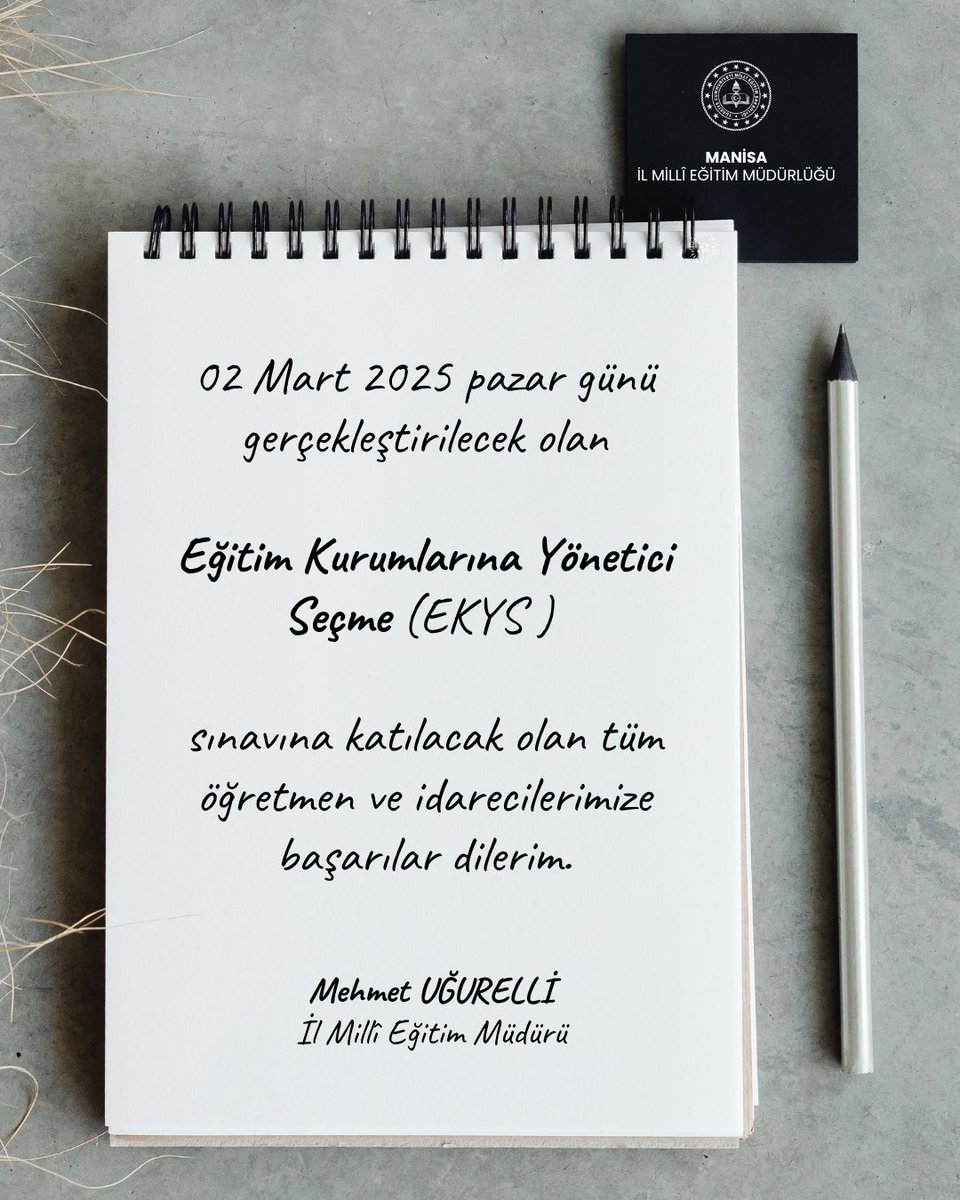 MANİSA
İL MİLLÎ EĞİTİM MÜDÜRLÜĞÜ
02 Mart 2025 pazar günü
gerçekleştirilecek olan
Eğitim Kurumlarına Yönetici
Seçme (EKYS )
sınavına katılacak olan tüm
öğretmen ve idarecilerimize
başarılar dilerim.
Mehmet UĞURELLİ
İl Millî Eğitim Müdürü